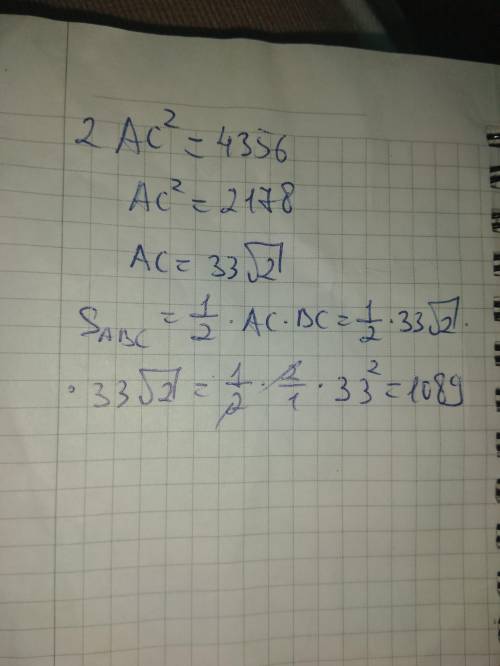 2 AC² = 4356
AC² = 2178
AC = 33√2
S_ABC = 1/2 · AC · BC = 1/2 · 33√2 ·
· 33√2 = 1/2 · 2/1 · 33² = 1089